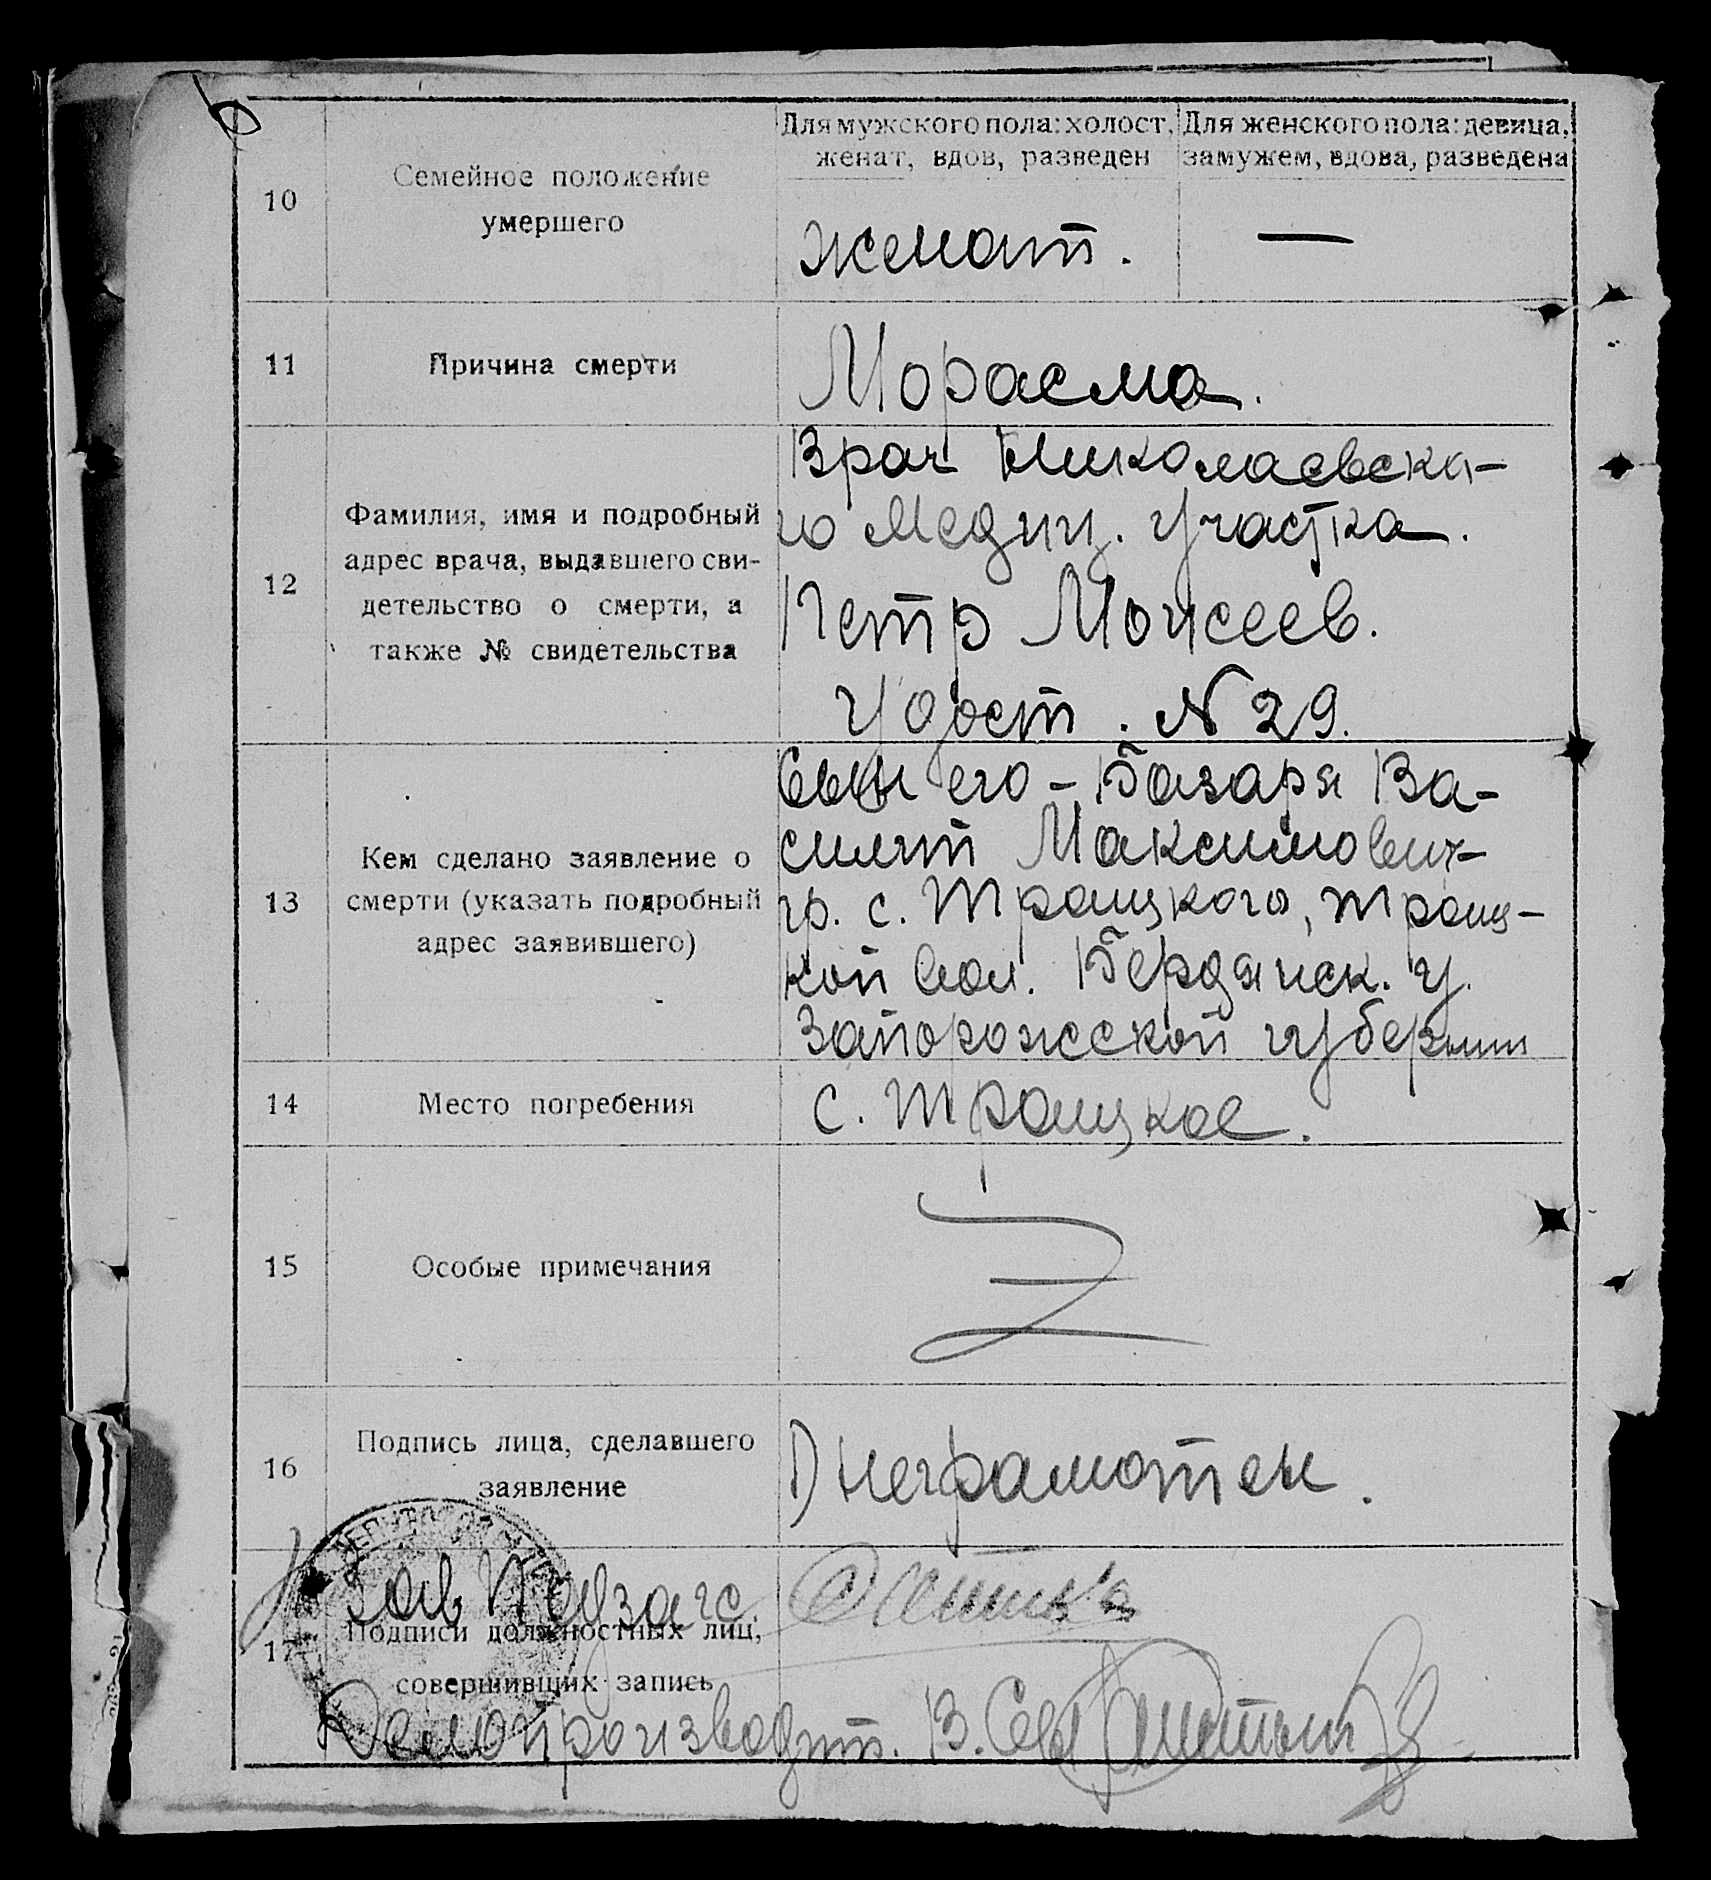 Для мужского пола: холост, женат, вдов, разведен
Для женского пола: девица, замужем, вдова, разведена
10
Семейное положение
умершего
женат.
—
11
Причина смерти
Морасма.
12
Фамилия, имя и подробный
адрес врача, выдавшего сви-
детельство о смерти, а
также № свидетельства
Врач Николаевска-
го Медиц. участка.
Петр Моисеев.
Удост. N 29.
13
Кем сделано заявление о
смерти (указать подробный
адрес заявившего)
Сын его - Базаря Ва-
силит Максимович-
гр. с. Троицкого, Троиц-
кой вол. Бердянск. у.
Запорожской губернии
14
Место погребения
с. Троицкое.
15
Особые примечания
16
Подпись лица, сделавшего
заявление
1) неграмотен.
17
Зав Подзагс.
Подписи должностных лиц,
совершивших запись
Делопроизводит. В.